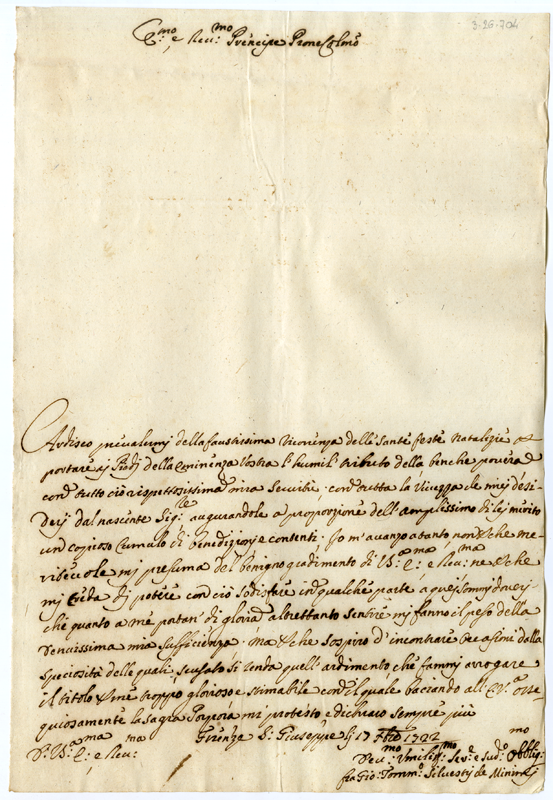 3-26-704
E.mo e Reu.mo Principe Prone Colmo
Ardisco preualermi della faustissima ricorrenza delle Sante feste Natalizie
portare a i Piedi della Eminenza Vostra l'humil tributo della benche pouera
con tutto ciò rispettosissima mia Seruitù con tutta la Viuezza de miei desi
derij dal nascente Sig.re augurandole a proporzione dell'amplissimo di lei merito
un copioso Cumulo di benedizioni e contenti. Io m'auanzo a tanto non che me-
riteuole mi presuma del benigno gradimento di V.a E.ma e Reu.ma ne che
mi creda di potere con ciò sodisfare in qualche parte a quei sommi doueri
che quanto a me portan di gloria altrettanto sentire mi fanno il peso della
tenuissima mia sufficienza ma che sospiro d'incontrare occasioni dalla
speciosità delle quali scusato si renda quell'ardimento, che fammi arrogare
il titolo a me troppo glorioso e stimabile con il quale baciando all' E.V. osse-
quiosamente la Sagra Porpora mi protesto e dichiaro sempre più
Firenze S. Giuseppe li 17 Xbre 1722
D. V.a E.ma e Reu.ma
Deu.mo Umiliss.mo Ser.e e Sud.o Obblig.mo
fra Gio: Tomm.o Siluestri de Minimi